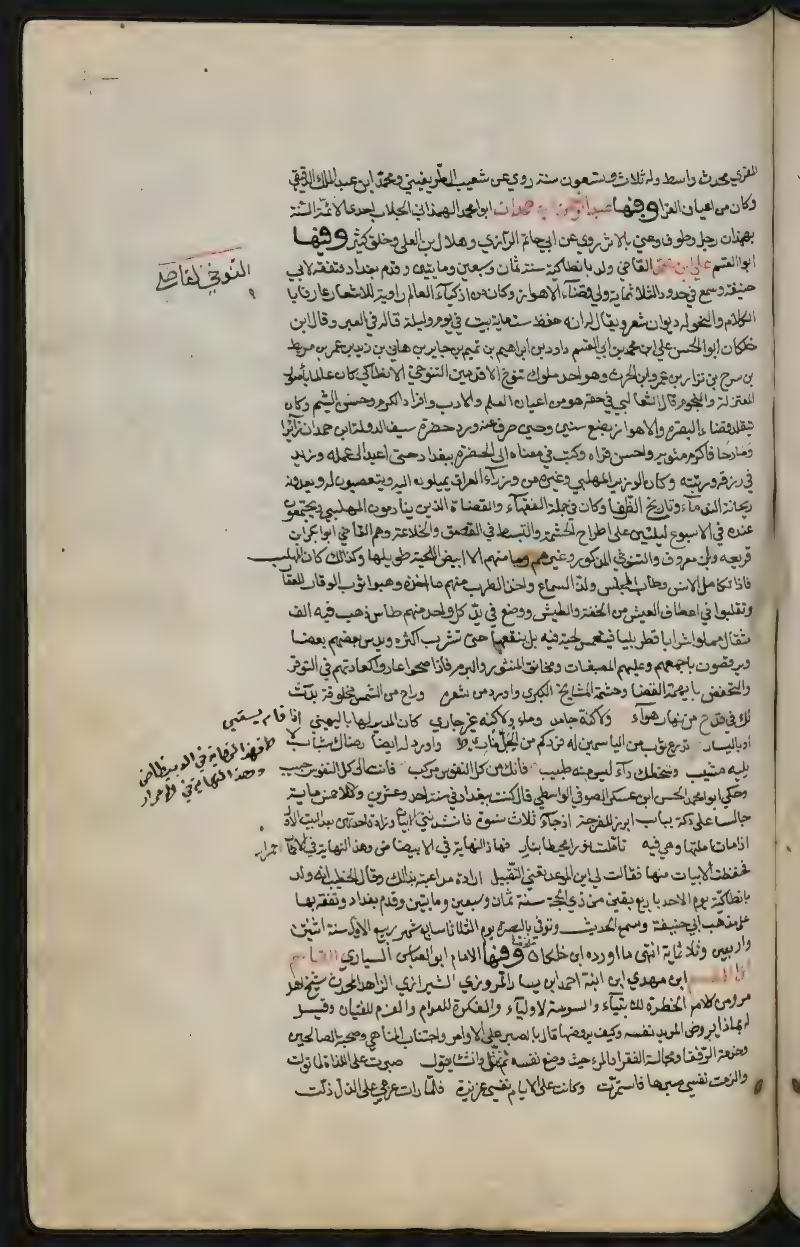 المقري محدث واسط وله ثلاث وتسعون سنة روي عن شعيب الصريفيني ومحمد ابن عبد الملك الدقيقي
وكان من اعيان القرا وفيها عبد الرحمن بن حمدان ابو محمد الهمذاني الجلاب احد الائمة السنة
بهمذان رحل وطوف وعني بالاثر روي عن ابي حاتم الرازي وهلال بن العلي وخلق كثير وفيها
ابو القسم علي ابن محمد القاضي ولد بانطاكية سنة ثمان وسبعين ومايتين وقدم بغداد وتفقه لابي
التنوخي القاضي
حنيفة وسمع في حدود الثلاثماية وولي قضاء الاهواز وكان من اذكياء العالم راوية للاشعار عارفا با
لكلام والنحو له ديوان شعر ويقال انه حفظ ستماية بيت في يوم وليلة قاله في العبر وقال ابن
خلكان ابو الحسن علي ابن محمد بن ابي القسم داود بن ابراهيم بن تميم بن جابر بن هاني بن زيد بن عمر بن مريط
بن سرح بن نزار بن عمرو بن الحرث وهو احد ملوك تنوخ الاقدمين التنوخي الانطاكي كان عالما باصول
المعتزلة والنجوم قال الثعالبي في حقه هو من اعيان العلم والادب وافراد الكرم وحسن الشيم وكان
يتقلد قضاء البصرة والاهواز بضع سنين وحين صرف عنه ورد حضرة سيف الدولة ابن حمدان زائرا
ومادحا فاكرم مثويه واحسن قراه وكتب في معناه الى الحضرة ببغداد حتى اعيد الى عمله وزيد
في رزقه ورتبته وكان الوزير المهلبي وغيره من وزراء العراق يميلون اليه ويتعصبون له ويعدونه
ريحانة الندماء وتاريخ الظرفا وكان في جملة الفقهاء والقضاة الذين ينادمون المهلبي ويجتمعون
عنده في الاسبوع ليلتين على اطراح الحشمة والتبسط في القصف والخلاعة وهم القاضي ابو بكر ابن
قريعة وابن معروف والتنوخي المذكور وغيرهم وما منهم الا ابيض اللحية طويلها وكذلك كان المهلب
فاذا تكامل الانس وطاب المجلس ولذ السماع واخذ الطرب منهم ماخذه وهبوا ثوب الوقار للعقا
وتقلبوا في اعطاف العيش من الخفة والطيش ووضع في يد كل واحد منهم طاس ذهب فيه الف
مثقال مملوا شرابا قطربليا فيغمس لحيته فيه بل ينقعها حتى تشرب اكثره ويرش بعضهم بعضا
ويرقصون باجمعهم وعليهم المصبغات ومخانق المنثور والبرم فاذا صحوا عادوا كعادتهم في التوقر
والتحفض بابهة القضا وحشمة المشايخ الكبرى واورد من شعره وراح من الشمس مخلوقة بدت
لك في قدح من نهار هواء ولاكنه جامد وماء ولاكنه غير جاري كان المدير لها باليمين اذا قام يسقي
او باليسار تدرع ثوبا من الياسمين له فرد كم من الجلنار واورد له ايضا رضاك شباب لا
يليه مشيب وسخطك داء ليس منه طبيب كانك من كل النفوس مركب فانت الى كل النفوس حبيب
وحكي ابو محمد الحسن ابن عسكر الصوفي الواسطي قال كنت ببغداد في سنة احد وعشرين وخمسماية
جالسا على دكة بباب ابرز للفرجة اذ جاء ثلاث نسوة
فهذا النهاية في الابيضاض وهذا النهاية في الاحمرار
فحفظت الابيات منها فقالت لي
بانطاكية يوم الاحد باربع بقين من ذي الحجة سنة ثمان وسبعين ومايتين وقدم بغداد وتفقه بها
على مذهب ابي حنيفة وسمع الحديث وتوفي بالبصرة يوم الثلاثا سابع شهر ربيع الاول سنة اثنين
واربعين وثلاثماية انتهى ما اورده ابن خلكان وفيها الامام ابو العباس السياري القاسم
ابن القسم ابن مهدي ابن ابنة احمد ابن سيار المروزي الشيرازي الزاهد المحدث شيخ اهل
مرو من كلامه الخطرة للانبياء والوسوسة للاولياء والفكرة للعوام والعزم للفتيان وقيل
له بماذا يروض المريد نفسه وكيف يروضها قال بالصبر على الاوامر واجتناب المناهي وصحبة الصالحين
وخدمة الرفقا ومجالسة الفقرا والمرء حيث وضع نفسه ثم تمثل وانشا يقول صبرت على اللذات لما تولت
والزمت نفسي صبرها فاستمرت وكانت على الايام نفسي عزيزة فلما رات عزمي على الذل ذلت